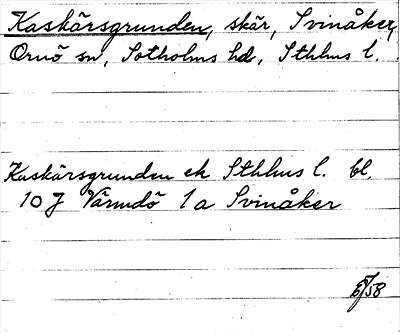 Kaskärsgrunden, skär, Svinåker,
Ornö sn, Sotholms hd, Sthlms l.
Kaskärsgrunden ek Sthlms l. bl.
10 J Värmdö 1a Svinåker
/58